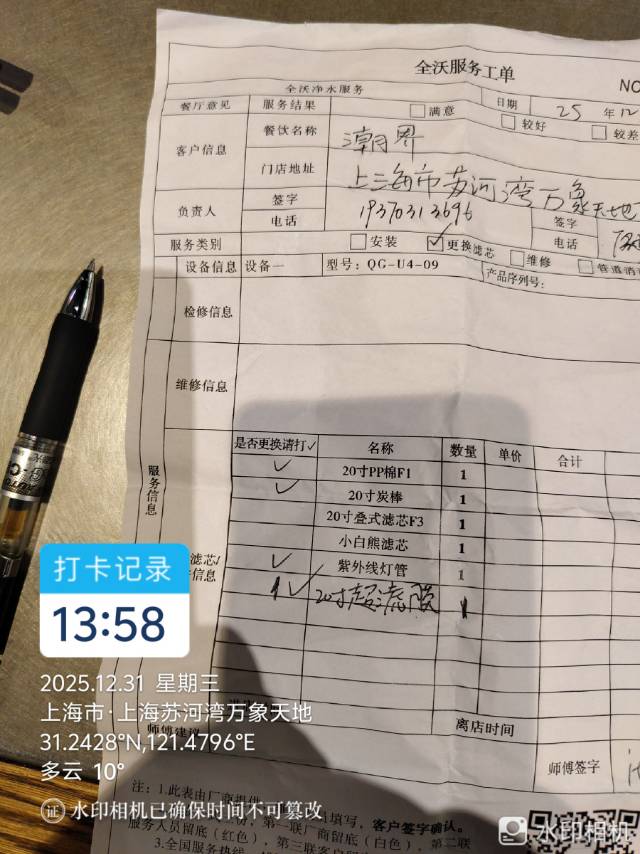 全沃服务工单
NO
全沃净水服务
日期 25 年 12
餐厅意见 服务结果 满意 较好 较差
客户信息 餐饮名称 潮界
门店地址 上海市苏河湾万象天地
负责人 签字 签字
电话 19370313696 电话
服务类别 安装 ✓ 更换滤芯 维修 管道消
设备信息 设备一 型号：QG-U4-09 产品序列号：
检修信息
维修信息
服务信息
是否更换请打✓ 名称 数量 单价 合计
✓ 20寸PP棉F1 1
✓ 20寸炭棒 1
20寸叠式滤芯F3 1
小白熊滤芯 1
✓ 紫外线灯管 1
滤芯/
信息
✓ 20寸超滤膜 1
打卡记录
13:58
2025.12.31 星期三
上海市·上海苏河湾万象天地
31.2428°N,121.4796°E
多云 10°
证 水印相机已确保时间不可篡改
离店时间
师傅建议
师傅签字
注：1.此表由厂商提供
填写，客户签字确认。
服务人员留底（红色），第一联厂商留底（白色），第二联
3.全国服务热线
水印相机